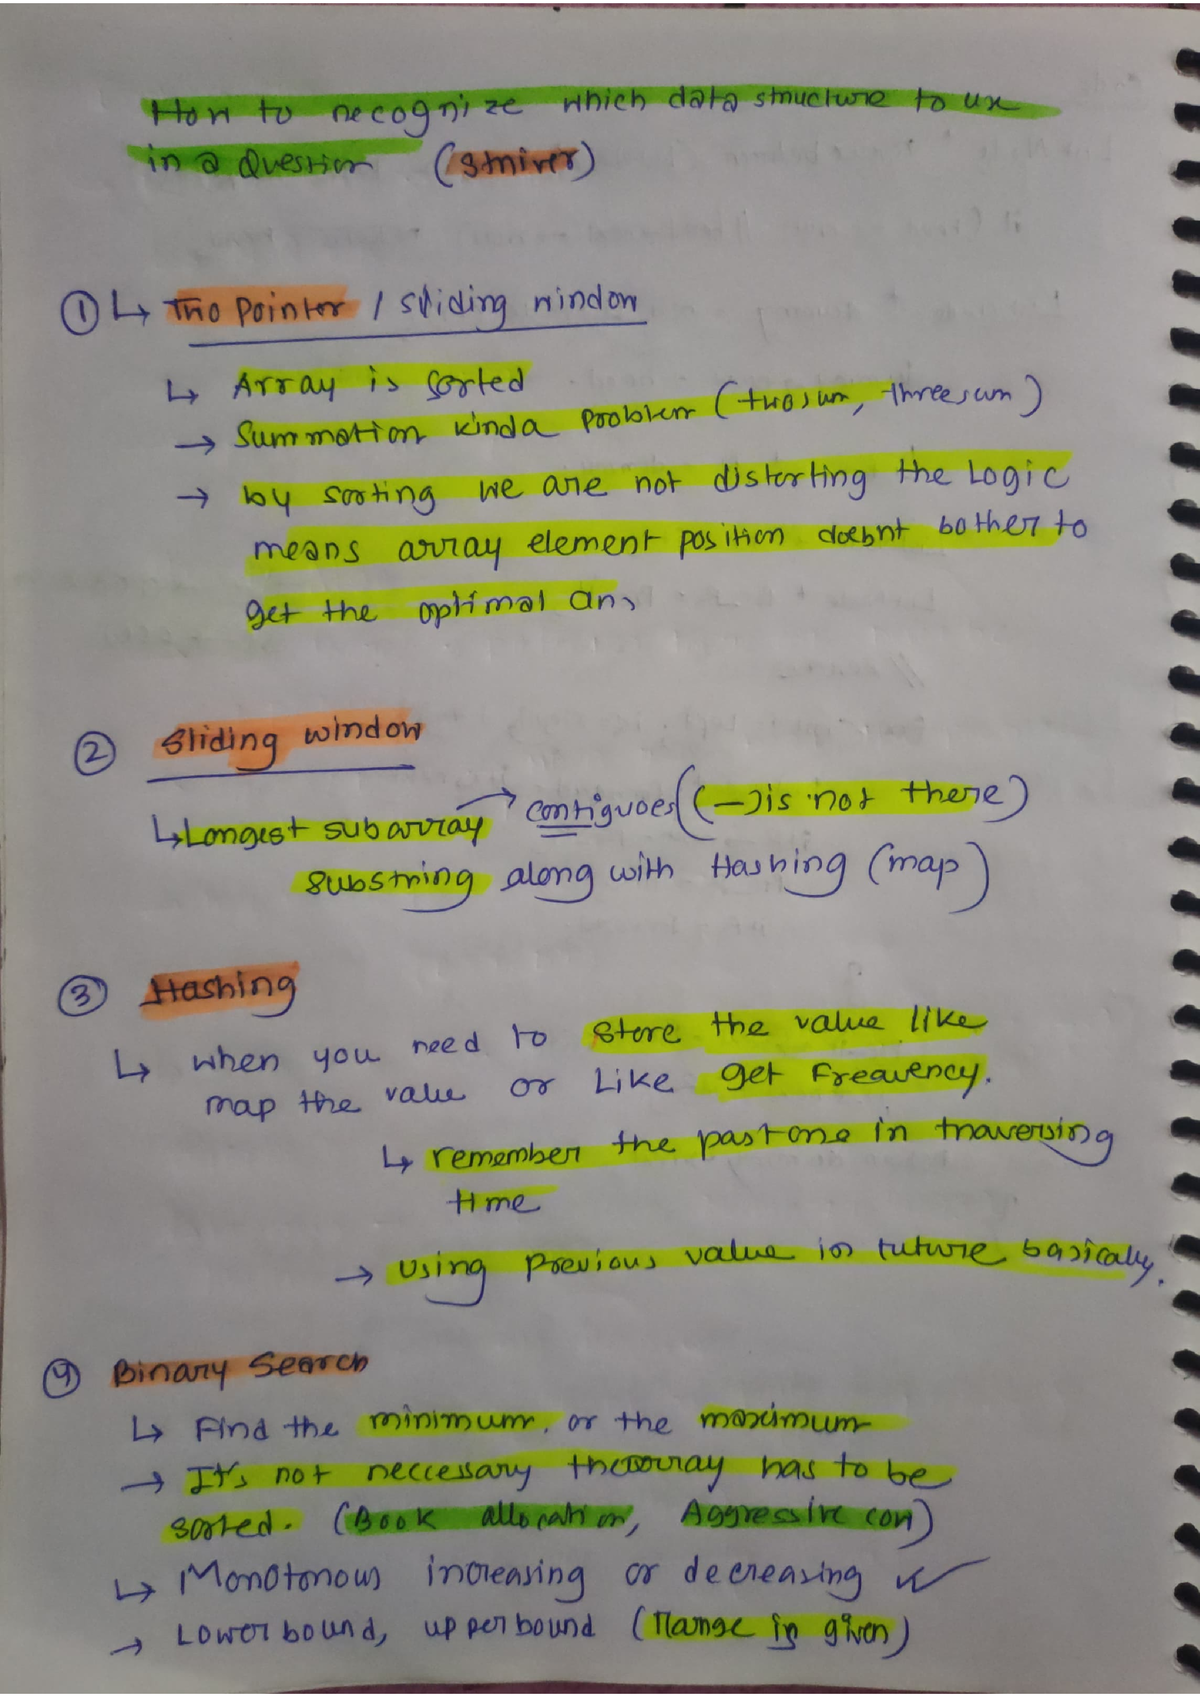 How to recognize which data structure to use
in a Question (Striver)
① ↳ Two Pointer / sliding window
↳ Array is sorted
→ Summation kinda problem (twosum, threesum)
→ by sorting we are not distorting the Logic
means array element position doesnt bother to
get the optimal ans
② Sliding window
↳ Longest subarray → contiguoes ((—) is not there)
substring along with Hashing (map)
③ Hashing
↳ when you need to store the value like
map the value or Like get Freavency.
↳ remember the past one in traversing
time
→ using previous value in future basically.
④ Binary Search
↳ Find the minimum. or the maximum
→ It's not neccessary the array has to be
sorted. (Book allocation, Aggressive cow)
↳ Monotonous increasing or decreasing ✓
→ Lowerbound, upperbound (Range is given)